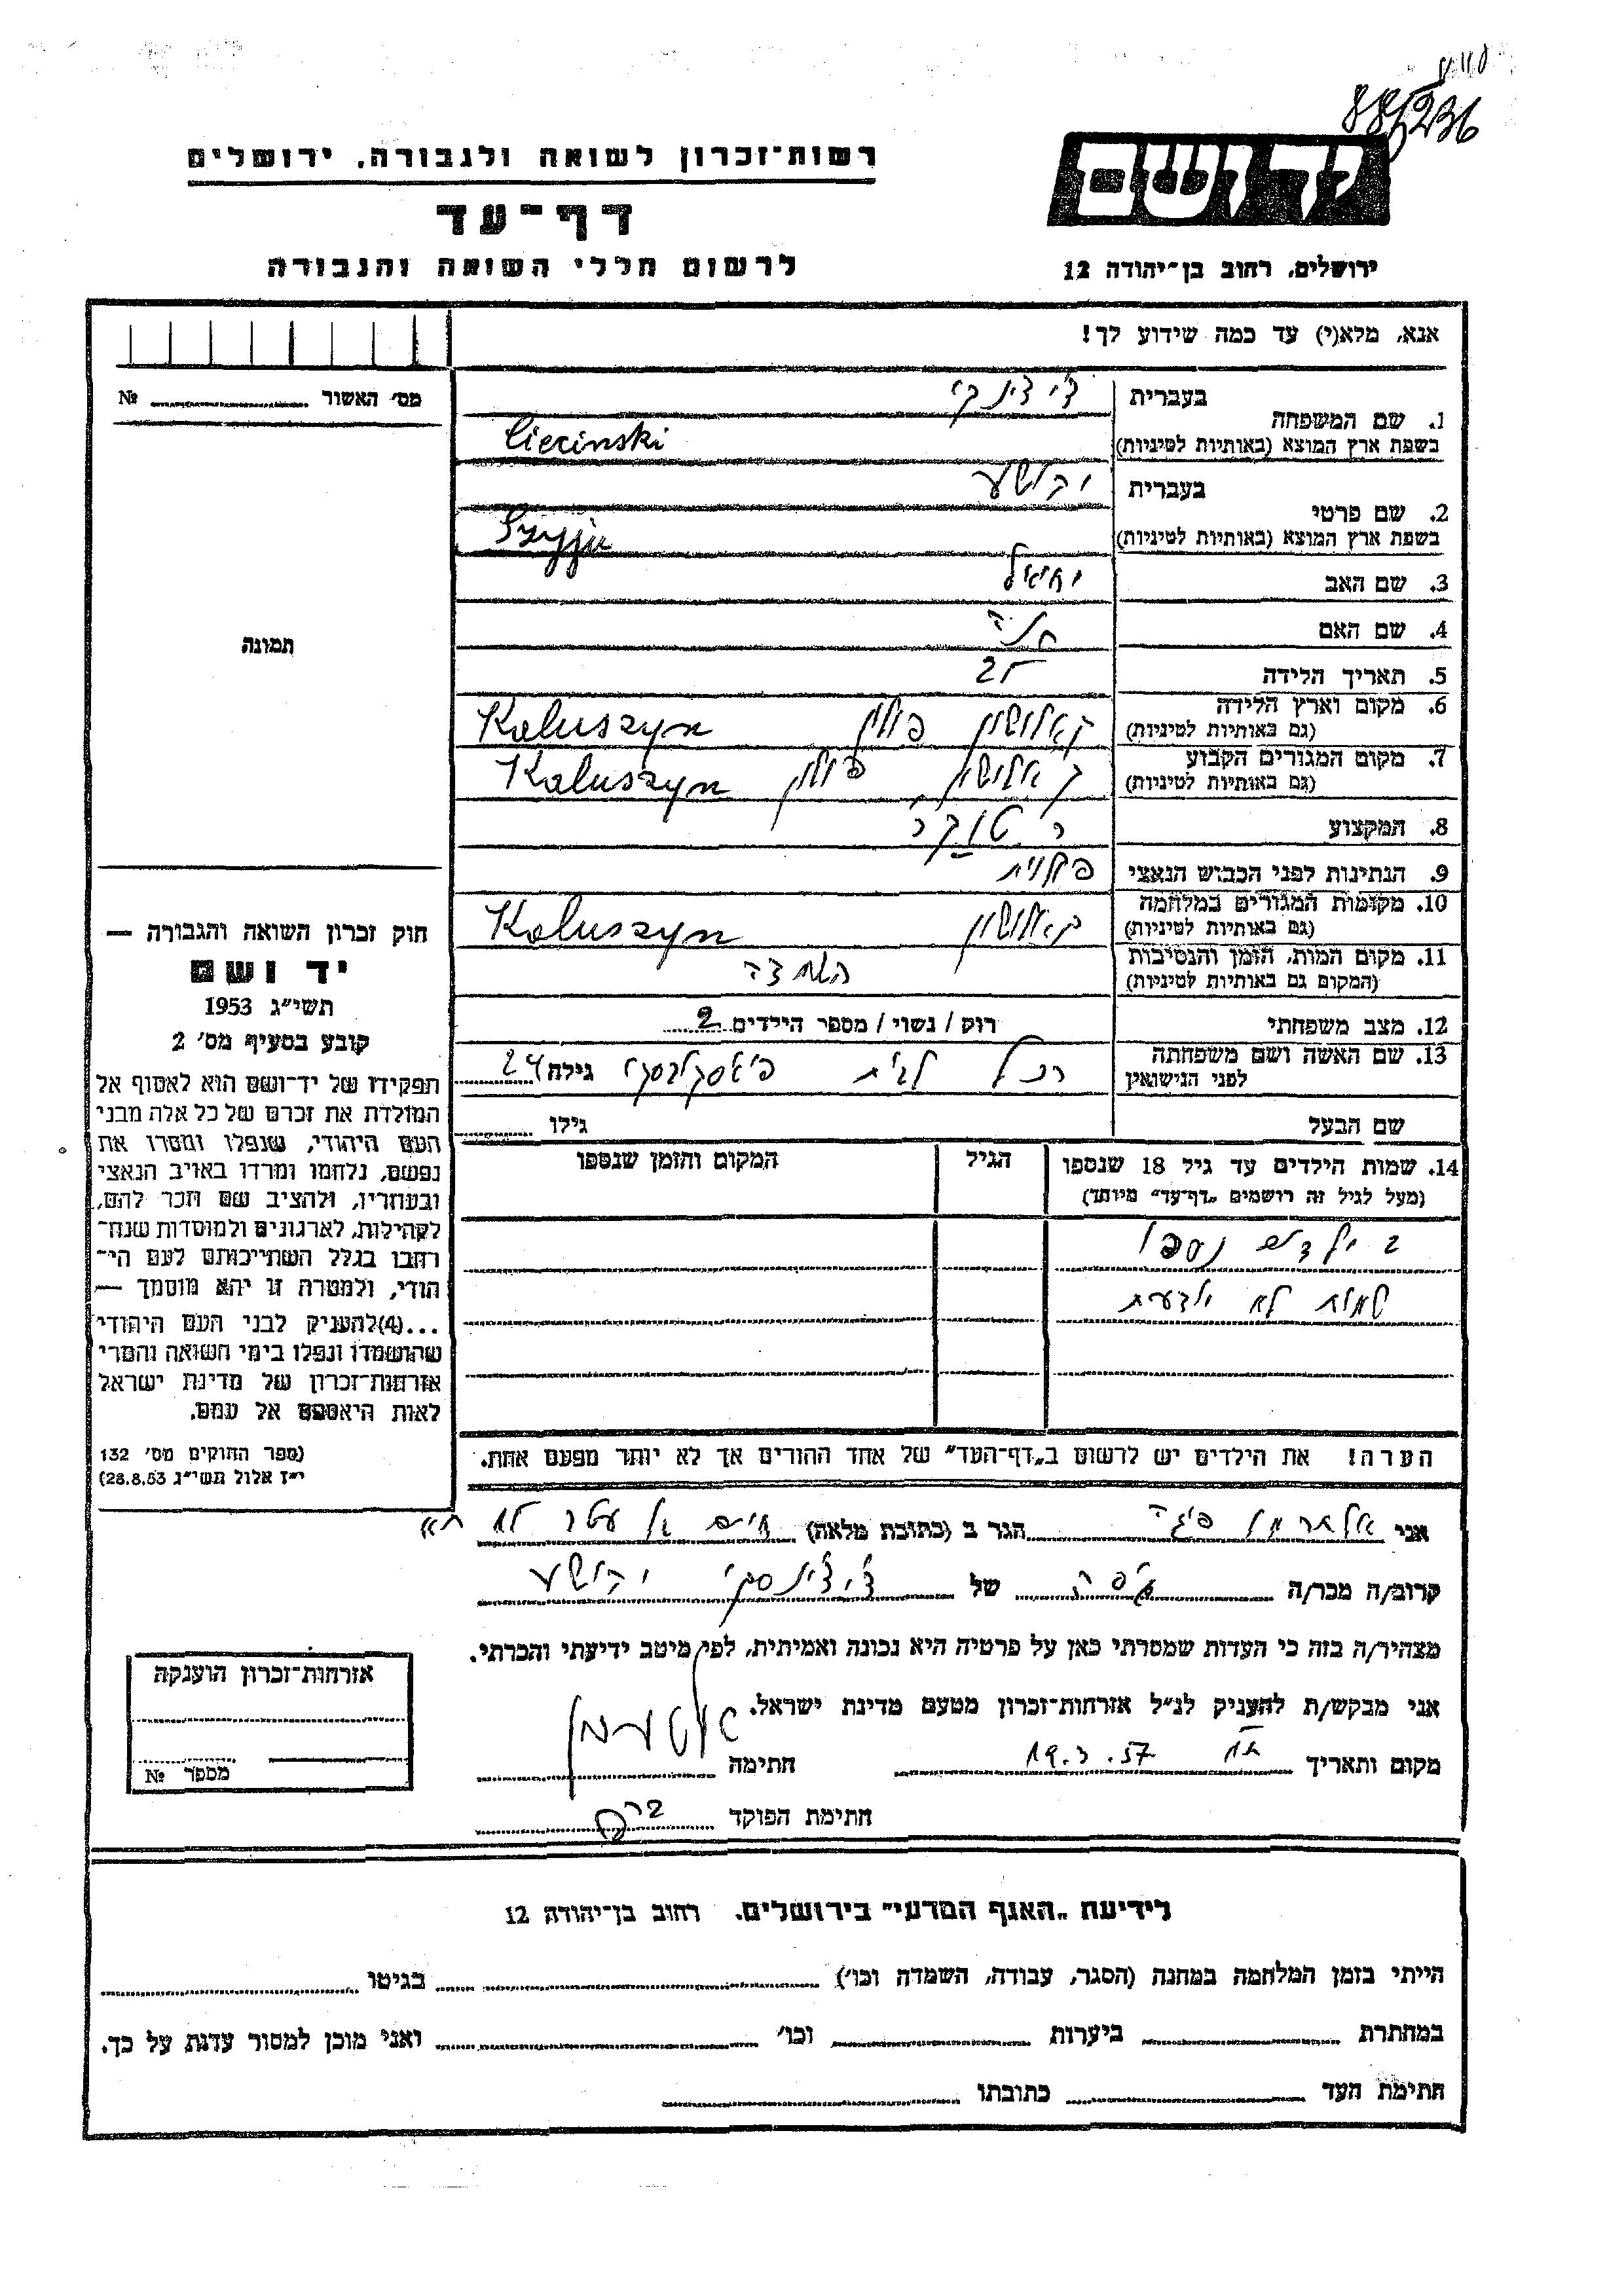 885236
רשות־זכרון לשואה ולגבורה, ירושלים
יד ושם
דף־עד
לרשום חללי השואה והגבורה
ירושלים, רחוב בן־יהודה 12
אנא, מלא(י) עד כמה שידוע לך!
מס׳ האשור № 
1. שם המשפחה
בעברית
בשפת ארץ המוצא (באותיות לטיניות) Ciecinski
2. שם פרטי
בעברית יהושע
בשפת ארץ המוצא (באותיות לטיניות)
3. שם האב יחיאל
4. שם האם חנה
5. תאריך הלידה 25
6. מקום וארץ הלידה קאלושין פולין Kaluszyn
(גם באותיות לטיניות)
7. מקום המגורים הקבוע קאלושין פולין Kaluszyn
(גם באותיות לטיניות)
8. המקצוע
9. הנתינות לפני הכבוש הנאצי פולנית
10. מקומות המגורים במלחמה קאלושין Kaluszyn
(גם באותיות לטיניות)
11. מקום המות, הזמן והנסיבות
(המקום גם באותיות לטיניות)
12. מצב משפחתי רוק / נשוי / מספר הילדים 2
13. שם האשה ושם משפחתה רחל לבית גילה 24
לפני הנישואין
שם הבעל גילו
14. שמות הילדים עד גיל 18 שנספו הגיל המקום והזמן שנספו
(מעל לגיל זה רושמים „דף־עד״ מיוחד)
2 ילדים נספו
שמות לא יודעת
הערה! את הילדים יש לרשום ב„דף־העד״ של אחד ההורים אך לא יותר מפעם אחת.
תמונה
חוק זכרון השואה והגבורה —
יד ושם
תשי״ג 1953
קובע בסעיף מס׳ 2
תפקידו של יד־ושם הוא לאסוף אל
המולדת את זכרם של כל אלה מבני
העם היהודי, שנפלו ומסרו את
נפשם, נלחמו ומרדו באויב הנאצי
ובעוזריו, ולהציב שם וזכר להם,
לקהילות, לארגונים ולמוסדות שנח־
רחבו בגלל השתייכותם לעם הי־
הודי, ולמטרה זו יהא מוסמך —
...(4)להעניק לבני העם היהודי
שהושמדו ונפלו בימי השואה והמרי
אזרחות־זכרון של מדינת ישראל
לאות היאספם אל עמם.
(ספר החוקים מס׳ 132
י״ז אלול תשי״ג 28.8.53)
אני אלתרמן פיגה הגר ב (כתובת מלאה) חיים בן עטר ת״א
קרוב/ה מכר/ה של יהושע
מצהיר/ה בזה כי העדות שמסרתי כאן על פרטיה היא נכונה ואמיתית, לפי מיטב ידיעתי והכרתי.
אני מבקש/ת להעניק לנ״ל אזרחות־זכרון מטעם מדינת ישראל.
מקום ותאריך ת״א 19.3.57 חתימה
חתימת הפוקד
אזרחות־זכרון הוענקה
מספר №
לידיעת „האגף המדעי״ בירושלים. רחוב בן־יהודה 12
הייתי בזמן המלחמה במחנה (הסגר, עבודה, השמדה וכו׳) בגיטו
במחתרת ביערות וכו׳ ואני מוכן למסור עדות על כך.
חתימת העד כתובתו